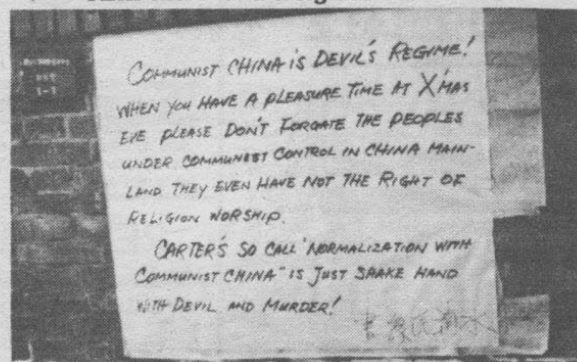 COMMUNIST CHINA IS DEVIL'S REGIME!
WHEN YOU HAVE A PLEASURE TIME AT X'MAS
EVE PLEASE DON'T FORGATE THE PEOPLES
UNDER COMMUNEST CONTROL IN CHINA MAIN-
LAND THEY EVEN HAVE NOT THE RIGHT OF
RELIGION WORSHIP.
CARTER'S SO CALL "NORMALIZATION WITH
COMMUNIST CHINA" IS JUST SHAKE HAND
WITH DEVIL AND MURDER!